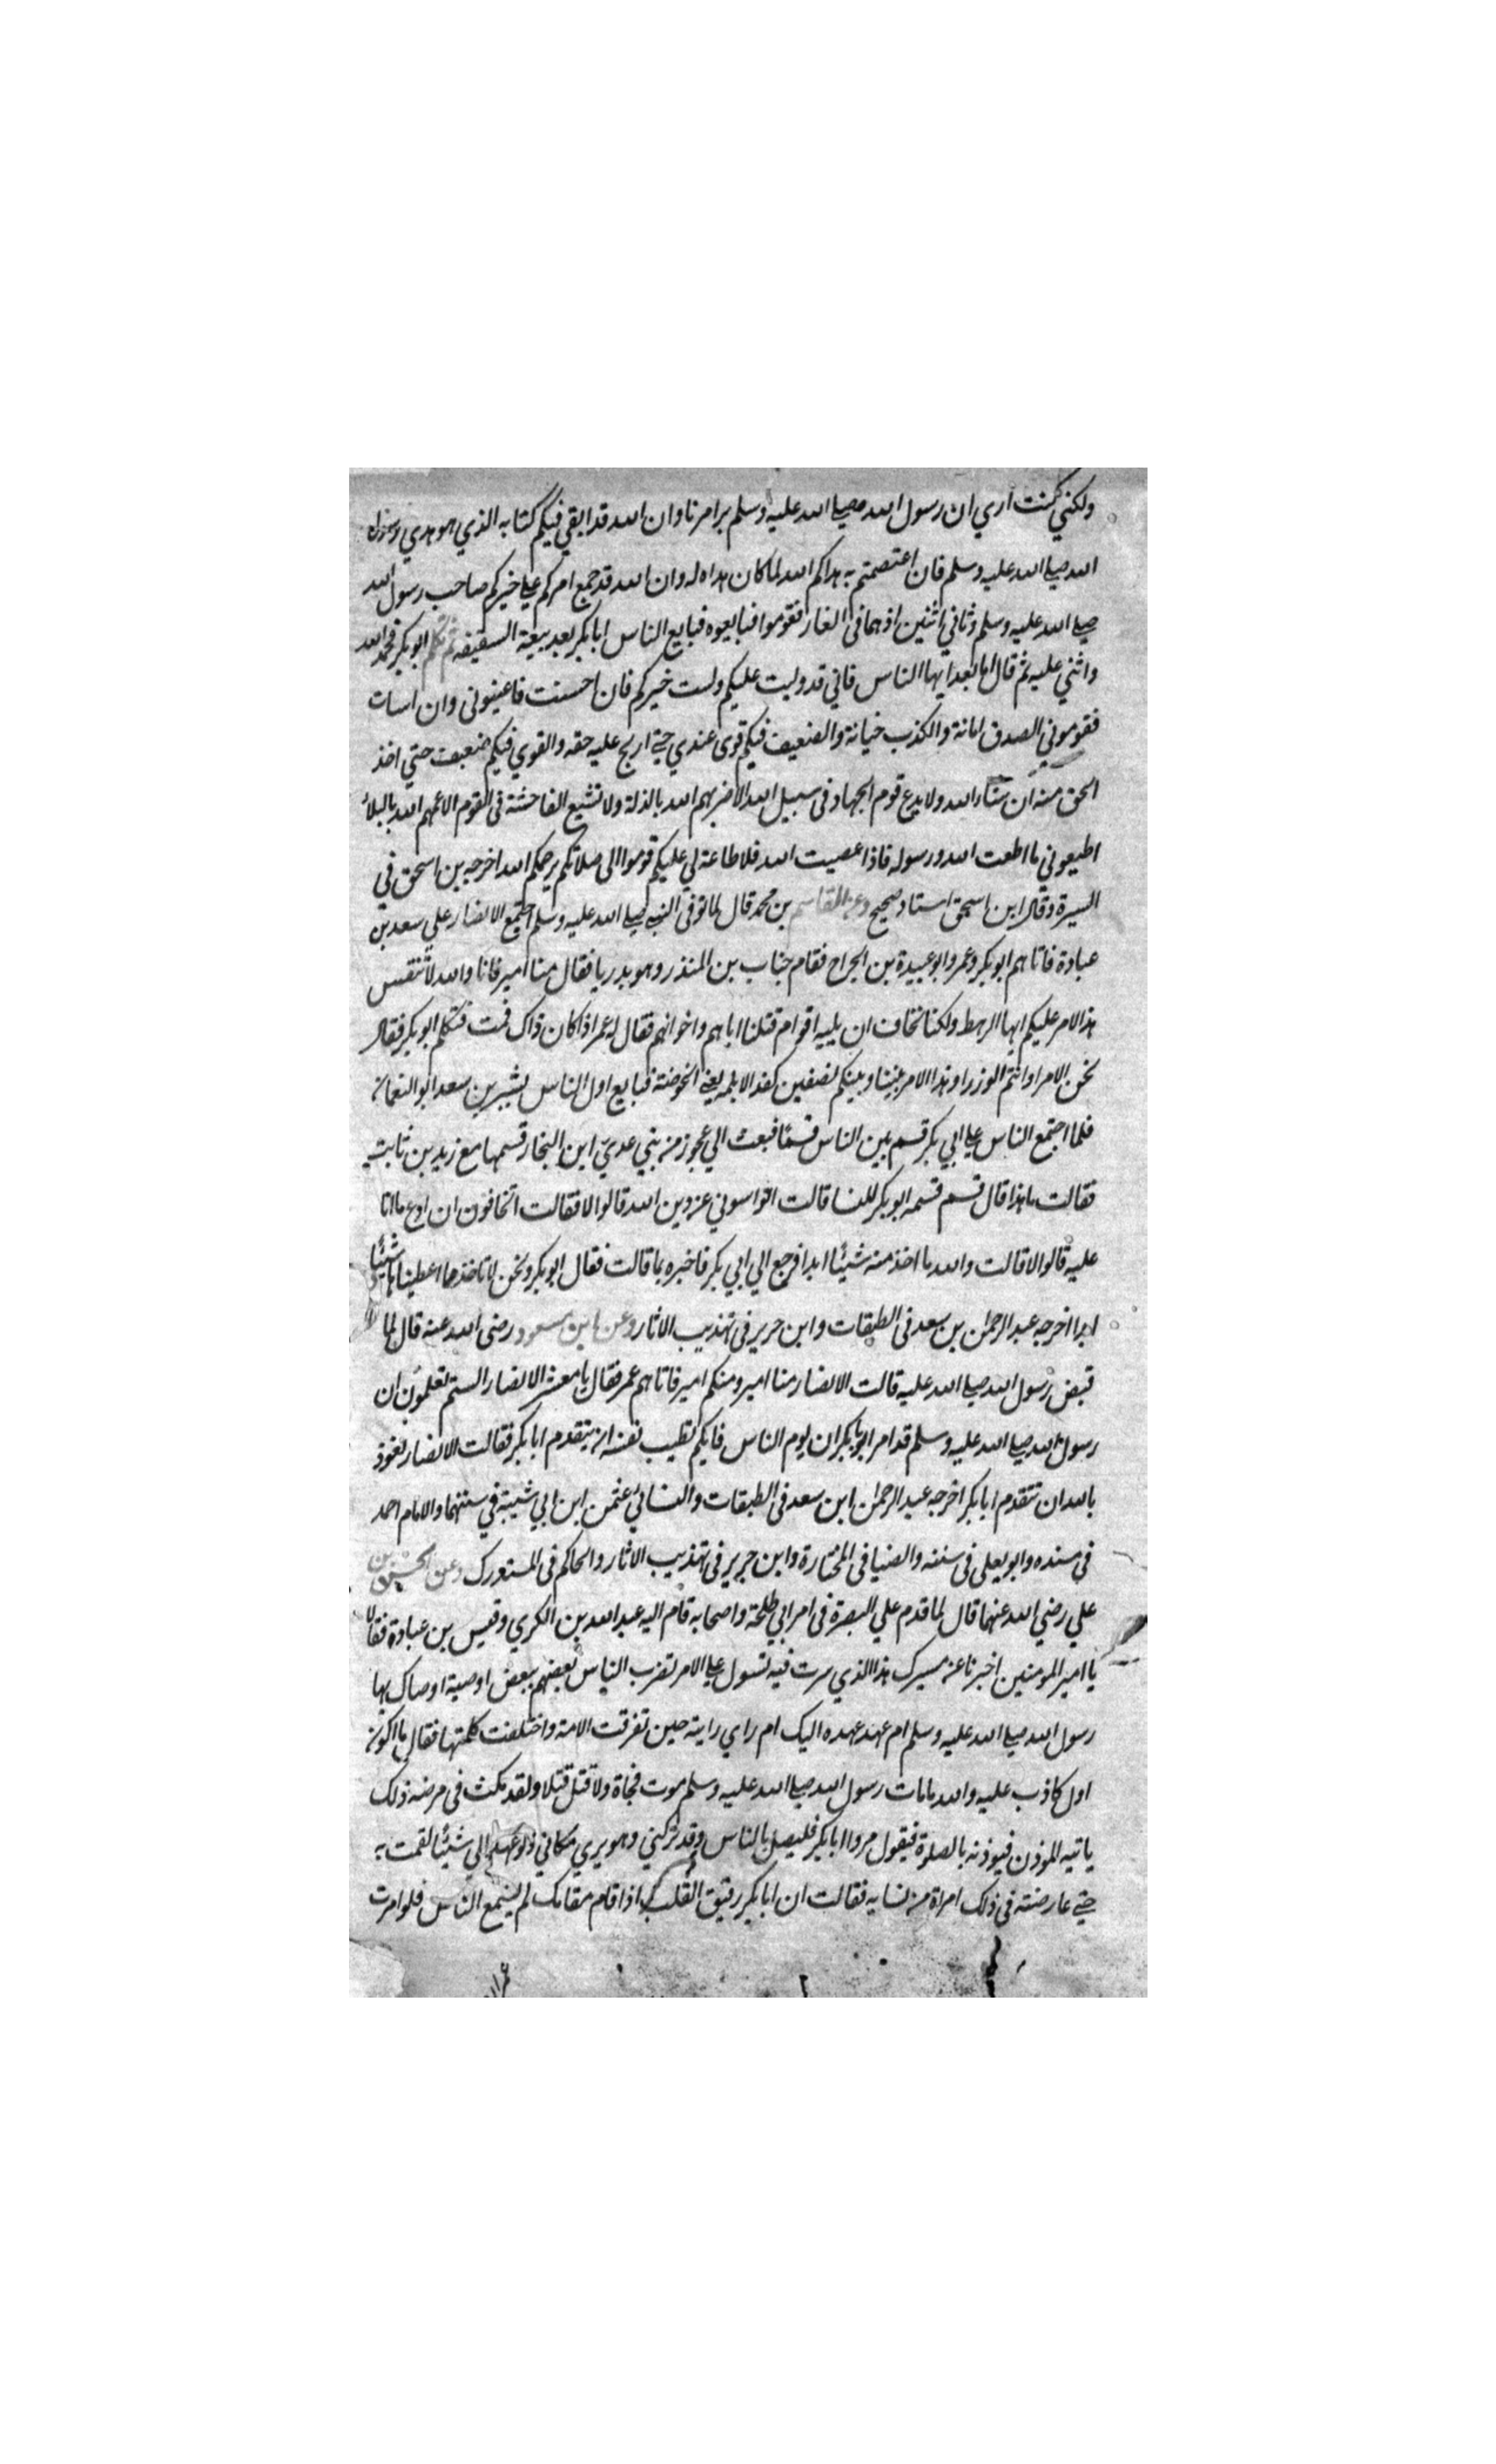 ولكني كنت اري ان رسول الله صلي الله عليه وسلم يدبر امرنا وان الله قد ابقي فيكم كتابه الذي هو هدي ورسول
الله صلي الله عليه وسلم فان اعتصمتم به هداكم الله لما كان هداه له وان الله قد جمع امركم علي خيركم صاحب رسول الله
صلي الله عليه وسلم وثاني اثنين اذ هما في الغار فقوموا فبايعوه فبايع الناس ابا بكر بعد بيعة السقيفه ثم تكلم ابو بكر فحمد الله
واثني عليه ثم قال اما بعد ايها الناس فاني قد وليت عليكم ولست خيركم فان احسنت فاعينوني وان اسات
فقوموني الصدق امانة والكذب خيانة والضعيف فيكم قوي عندي حتي اريح عليه حقه والقوي فيكم ضعيف حتي اخذ
الحق منه ان شاء الله ولا يدع قوم الجهاد في سبيل الله الا ضربهم الله بالذلة ولا تشيع الفاحشة في القوم الا عمهم الله بالبلاء
اطيعوني ما اطعت الله ورسوله فاذا عصيت الله فلا طاعة لي عليكم قوموا الي صلاتكم يرحمكم الله اخرجه بن اسحق في
السيرة وقال ابن اسحق اسناد صحيح وعن القاسم بن محمد قال لما توفي النبي صلي الله عليه وسلم اجتمع الانصار علي سعد بن
عبادة فاتاهم ابو بكر وعمر وابو عبيدة بن الجراح فقام حباب بن المنذر وهو بدريا فقال منا امير فانا والله لا ننفس
هذا الامر عليكم ايها الرهط ولكنا نخاف ان يليه اقوام قتلنا اباهم واخوانهم فقال له عمر اذا كان ذاك فمت فتكلم ابو بكر فقال
نحن الامرا وانتم الوزرا وهذا الامر بيننا وبينكم نصفين كقد الابلمه يعني الخوصة فبايع اول الناس بشير بن سعد ابو النعمان
فلما اجتمع الناس علي ابي بكر قسم بين الناس قسمًا فبعث الي عجوز من بني عدي ابن النجار قسمها مع زيد بن ثابت
فقالت ما هذا قال قسم قسمه ابو بكر للنسا قالت اتراسوني عن دين الله قالوا لا فقالت اتخافون ان ادع ما انا
عليه قالوا لا قالت والله ما اخذ منه شيئًا ابدا فرجع الي ابي بكر فاخبره بما قالت فقال ابو بكر ونحن لا ناخذ مما اعطيناها شيئًا
ابدا اخرجه عبد الرحمن بن سعد في الطبقات وابن جرير في تهذيب الاثار وعن ابن مسعود رضي الله عنه قال لما
قبض رسول الله صلي الله عليه قالت الانصار منا امير ومنكم امير فاتاهم عمر فقال يا معشر الانصار الستم تعلمون ان
رسول الله صلي الله عليه وسلم قد امر ابا بكر ان يوم الناس فايكم تطيب نفسه ان يتقدم ابا بكر فقالت الانصار نعوذ
بالله ان نتقدم ابا بكر اخرجه عبد الرحمن ابن سعد في الطبقات والنسائي عثمن ابن ابي شيبة في سننهما والامام احمد
في مسنده وابو يعلي في سننه والضيا في المختارة وابن جرير في تهذيب الاثار والحاكم في المستدرك وعن الحسن بن
علي رضي الله عنهما قال لما قدم علي البصرة في امر ابي طلحة واصحابه قام اليه عبد الله بن الكري وقيس بن عبادة فقالا
يا امير المومنين اخبرنا عن مسيرك هذا الذي سرت فيه تسول علي الامر تضرب الناس بعضهم ببعض اوصية اوصاك بها
رسول الله صلي الله عليه وسلم ام عهد عهده اليك ام راي رايته حين تفرقت الامة واختلفت كلمتها فقال ما اكون
اول كاذب عليه والله ما مات رسول الله صلي الله عليه وسلم موت فجاة ولا قتل قتلا ولقد مكث في مرضه ذلك
ياتيه الموذن فيوذنه بالصلوة فيقول مروا ابا بكر فليصل بالناس وقد تركني وهو يري مكاني ولو عهد الي شيئًا لقمت به
حتي عارضته في ذلك امراة من نسايه فقالت ان ابا بكر رقيق القلب اذا قام مقامك لم يسمع الناس فلو امرت